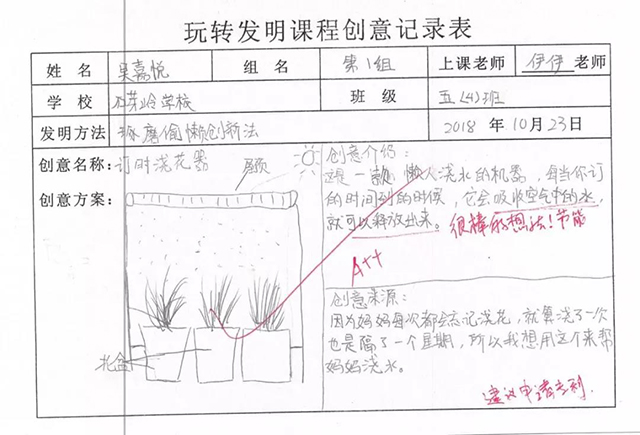 玩转发明课程创意记录表
姓 名 吴嘉悦 组 名 第1组 上课老师 伊伊 老师
学 校 石芽岭学校 班 级 五(4)班
发明方法 琢磨偷懒创新法 2018 年 10 月 23 日
创意名称: 订时浇花器
创意方案:
花盆
创意介绍:
这是一款懒人浇水的机器,每当你订
的时间到的时候,它会吸收空气中的水,
就可以释放出来。 很棒的想法!节能
A++
创意来源:
因为妈妈每次都会忘记浇花,就算浇了一次
也是隔了一个星期,所以我想用这个来帮
妈妈浇水。
建议申请专利